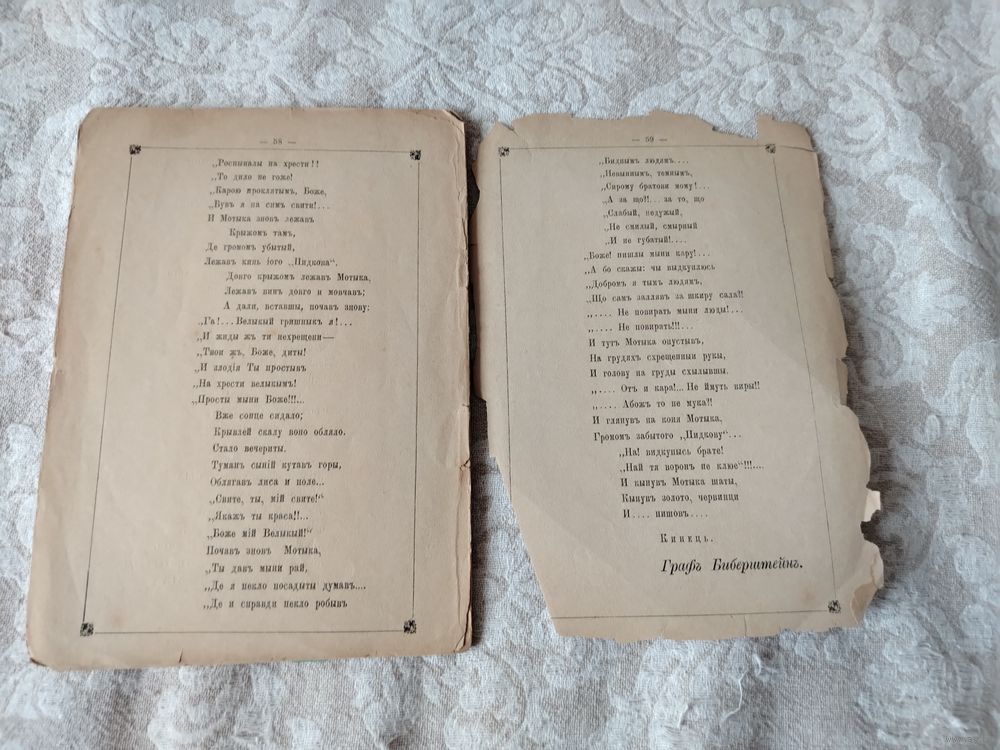 — 58 —
„Роспыналы на хрести!!
„То дило не гоже!
„Карою проклятымъ, Боже,
„Бувъ я на симъ свити!...
И Мотыка зновъ лежавъ
Крыжомъ тамъ,
Де громомъ убытый,
Лежавъ кинь іого „Пидкова“.
Довго крыжомъ лежавъ Мотыка,
Лежавъ винъ довго и мовчавъ;
А дали, вставшы, почавъ знову:
„Га!... Великый гришныкъ я!...
„И жиды жъ ти нехрещени—
„Твои жъ, Боже, диты!
„И злодія Ты простывъ
„На хрести великымъ!
„Просты мыни Боже!!!...
Вже сонце сидало;
Крывлей скалу воно обляло.
Стало вечериты.
Туманъ сыній кутавъ горы,
Облягавъ лиса и поле...
„Свите, ты, мій свите!“
„Якажъ ты краса!!...
„Боже мій Великый!“
Почавъ зновъ Мотыка,
„Ты давъ мыни рай,
„Де я пекло посадыты думавъ....
„Де и справди пекло робывъ
— 59 —
„Биднымъ людямъ....
„Невыннымъ, темнымъ,
„Сирому братови мому!...
„А за що!!... за то, що
„Слабый, недужый,
„Не смилый, смырный
„И не губатый!....
„Боже! пишлы мыни кару!...
„А бо скажы: чы выдкуплюсь
„Добромъ я тымъ людямъ,
„Що самъ заллявъ за шкиру сала!!
„.... Не повирать мыни люды!...
„.... Не повирать!!!...
И тутъ Мотыка опустывъ,
На грудяхъ схрещенныи рукы,
И голову на груды схылывшы.
„.... Отъ и кара!... Не ймуть виры!!
„.... Абожъ то не мука!!
И глянувъ на коня Мотыка,
Громомъ забытого „Пидкову“...
„На! видкупысь брате!
„Най тя воронъ не клюе“!!!....
И кынувъ Мотыка шаты,
Кынувъ золото, червинци
И.... пишовъ....
Кинець.
Графъ Биберштейнъ.